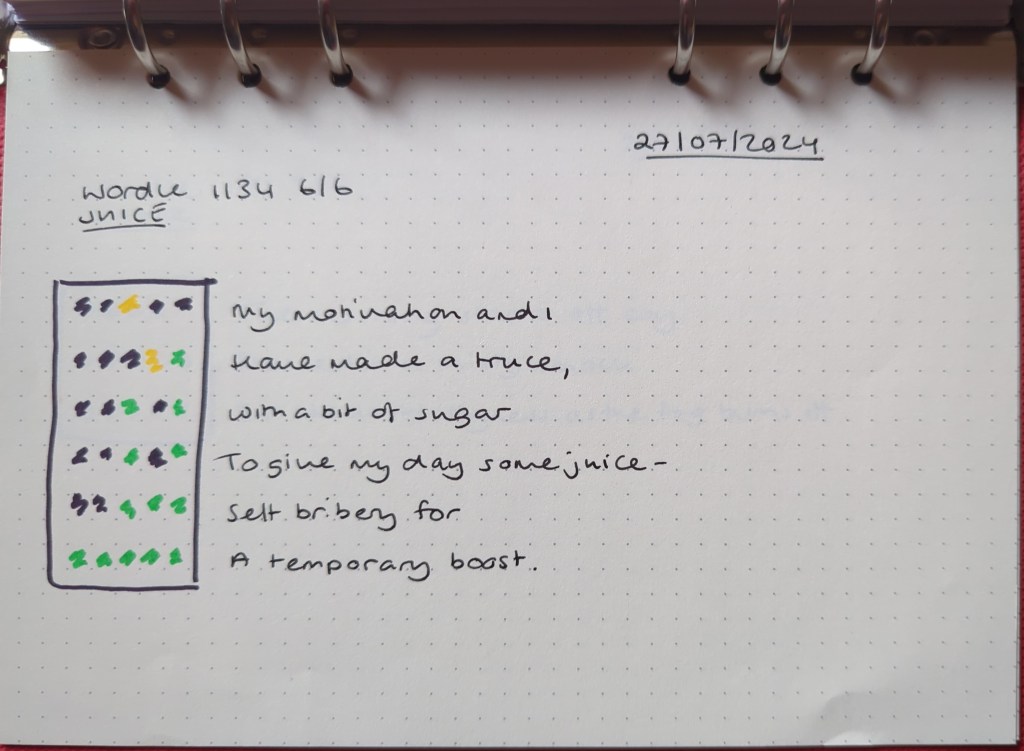 27/07/2024
Wordle 1134 6/6
JUICE
My motivation and I
Have made a truce,
with a bit of sugar
To give my day some juice-
Self bribery for
A temporary boost.